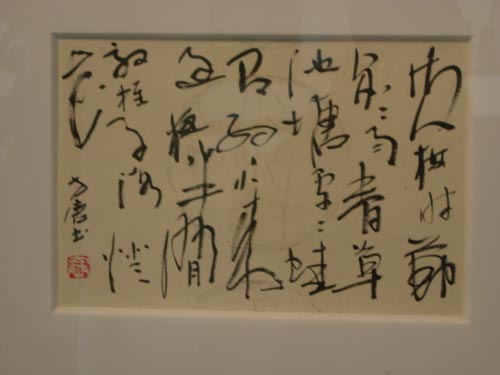 黄梅时節
家々雨青草
池塘處々蛙
有約不来
過夜半閒
敲棋子落燈
花